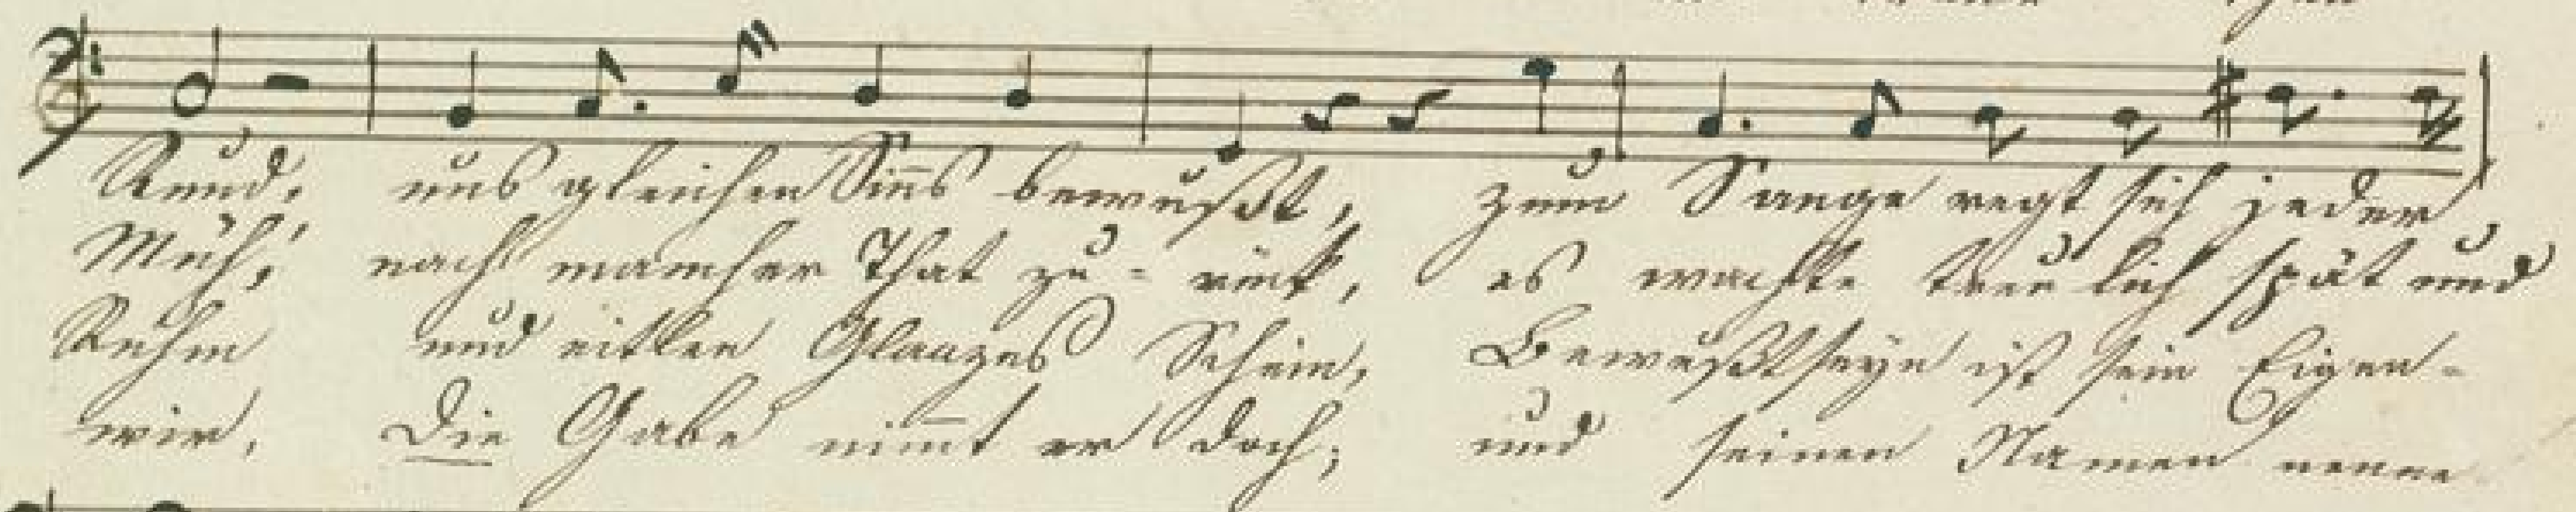 Rund, uns gleichen Sin̅s bewußt, zum Sange regt sich jeder
Müh, nach mancher That zu- rück, es wachte treulich spät und
Ruhm und eitlen Glanzes Schein, Bewußtseyn ist sein Eigen-
wir. Die Gabe nim̅t er doch; und seinen Namen nenne